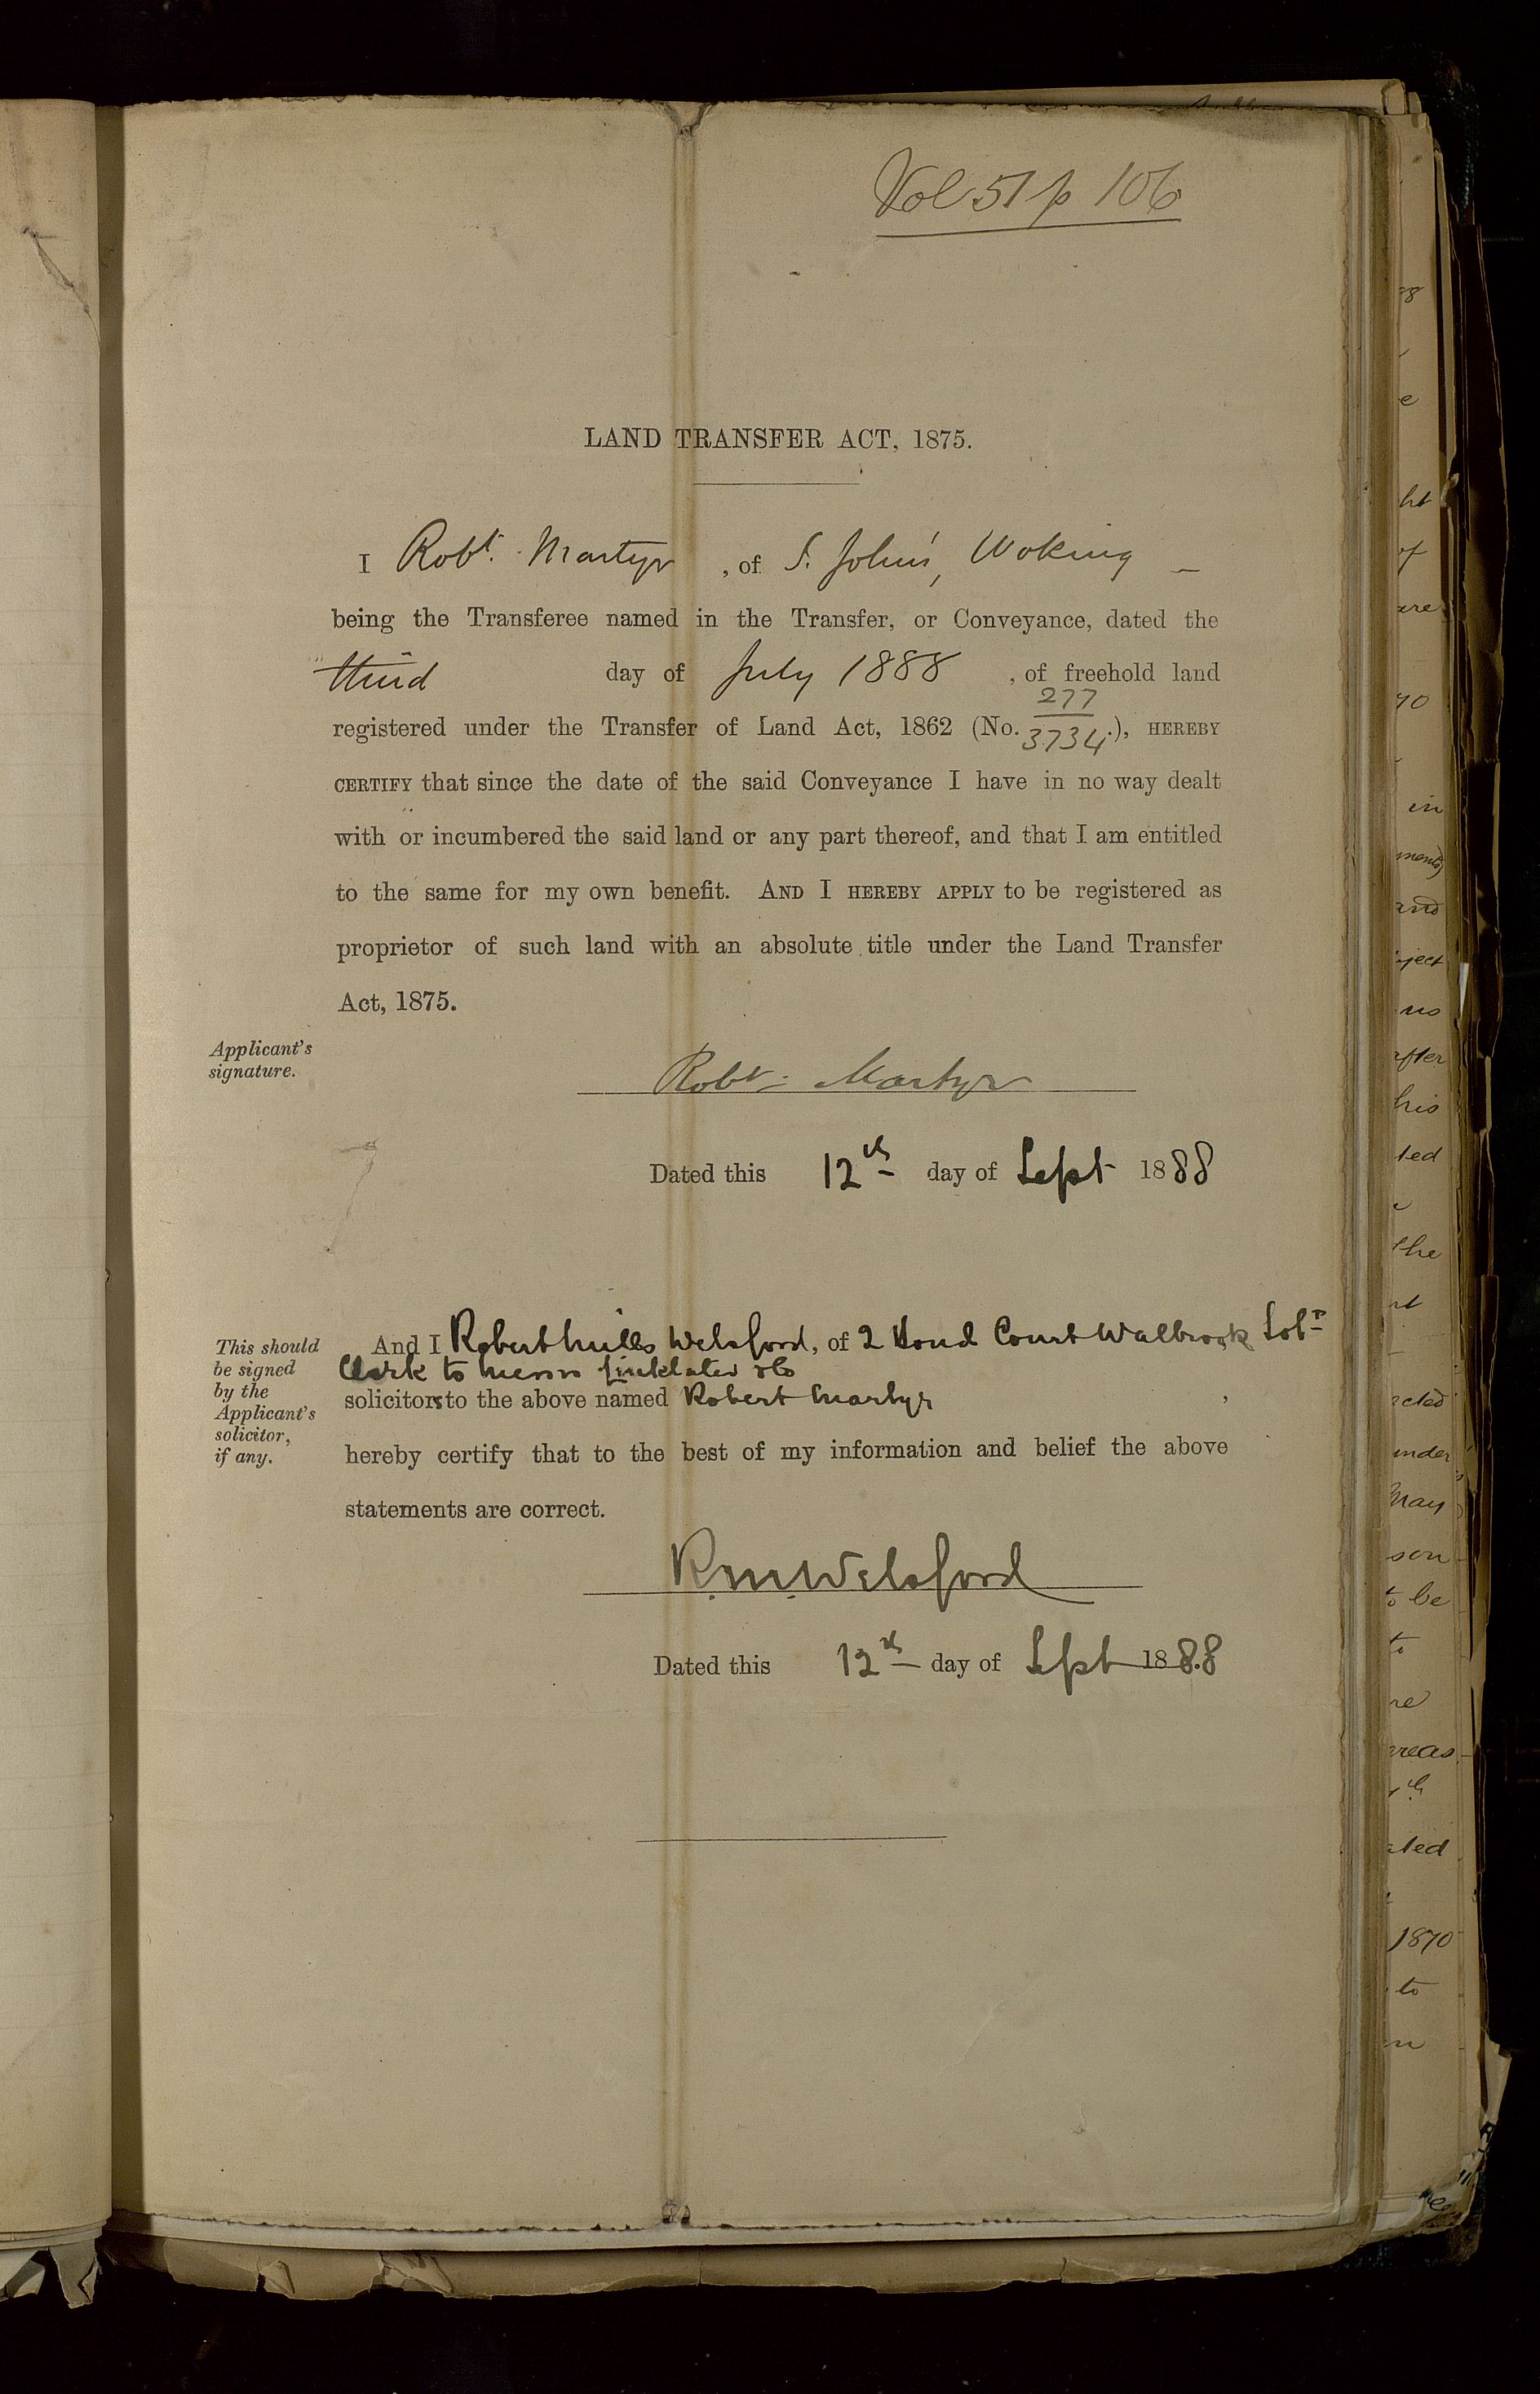 Vol 51 p 106
LAND TRANSFER ACT, 1875.
I Robt. Martyr, of S. John's, Woking —
being the Transferee named in the Transfer, or Conveyance, dated the
third day of July 1888, of freehold land
277
registered under the Transfer of Land Act, 1862 (No. 3734.), HEREBY
CERTIFY that since the date of the said Conveyance I have in no way dealt
with or incumbered the said land or any part thereof, and that I am entitled
to the same for my own benefit. AND I HEREBY APPLY to be registered as
proprietor of such land with an absolute title under the Land Transfer
Act, 1875.
Applicant's
signature.
Robt. Martyr
Dated this 12th day of Sept 1888
This should
be signed
by the
Applicant's
solicitor,
if any.
And I Robert Mills Welsford, of 2 Bond Court Walbrook Solr
Clerk to Messrs Linklater & Co
solicitors to the above named Robert Martyr,
hereby certify that to the best of my information and belief the above
statements are correct.
R.M.Welsford
Dated this 12th day of Sept 1888
ht
of
are
70
in
and
ject
no
after
his
ted
the
acted
under
May
son
to be
to
re
reas
ated
1870
to